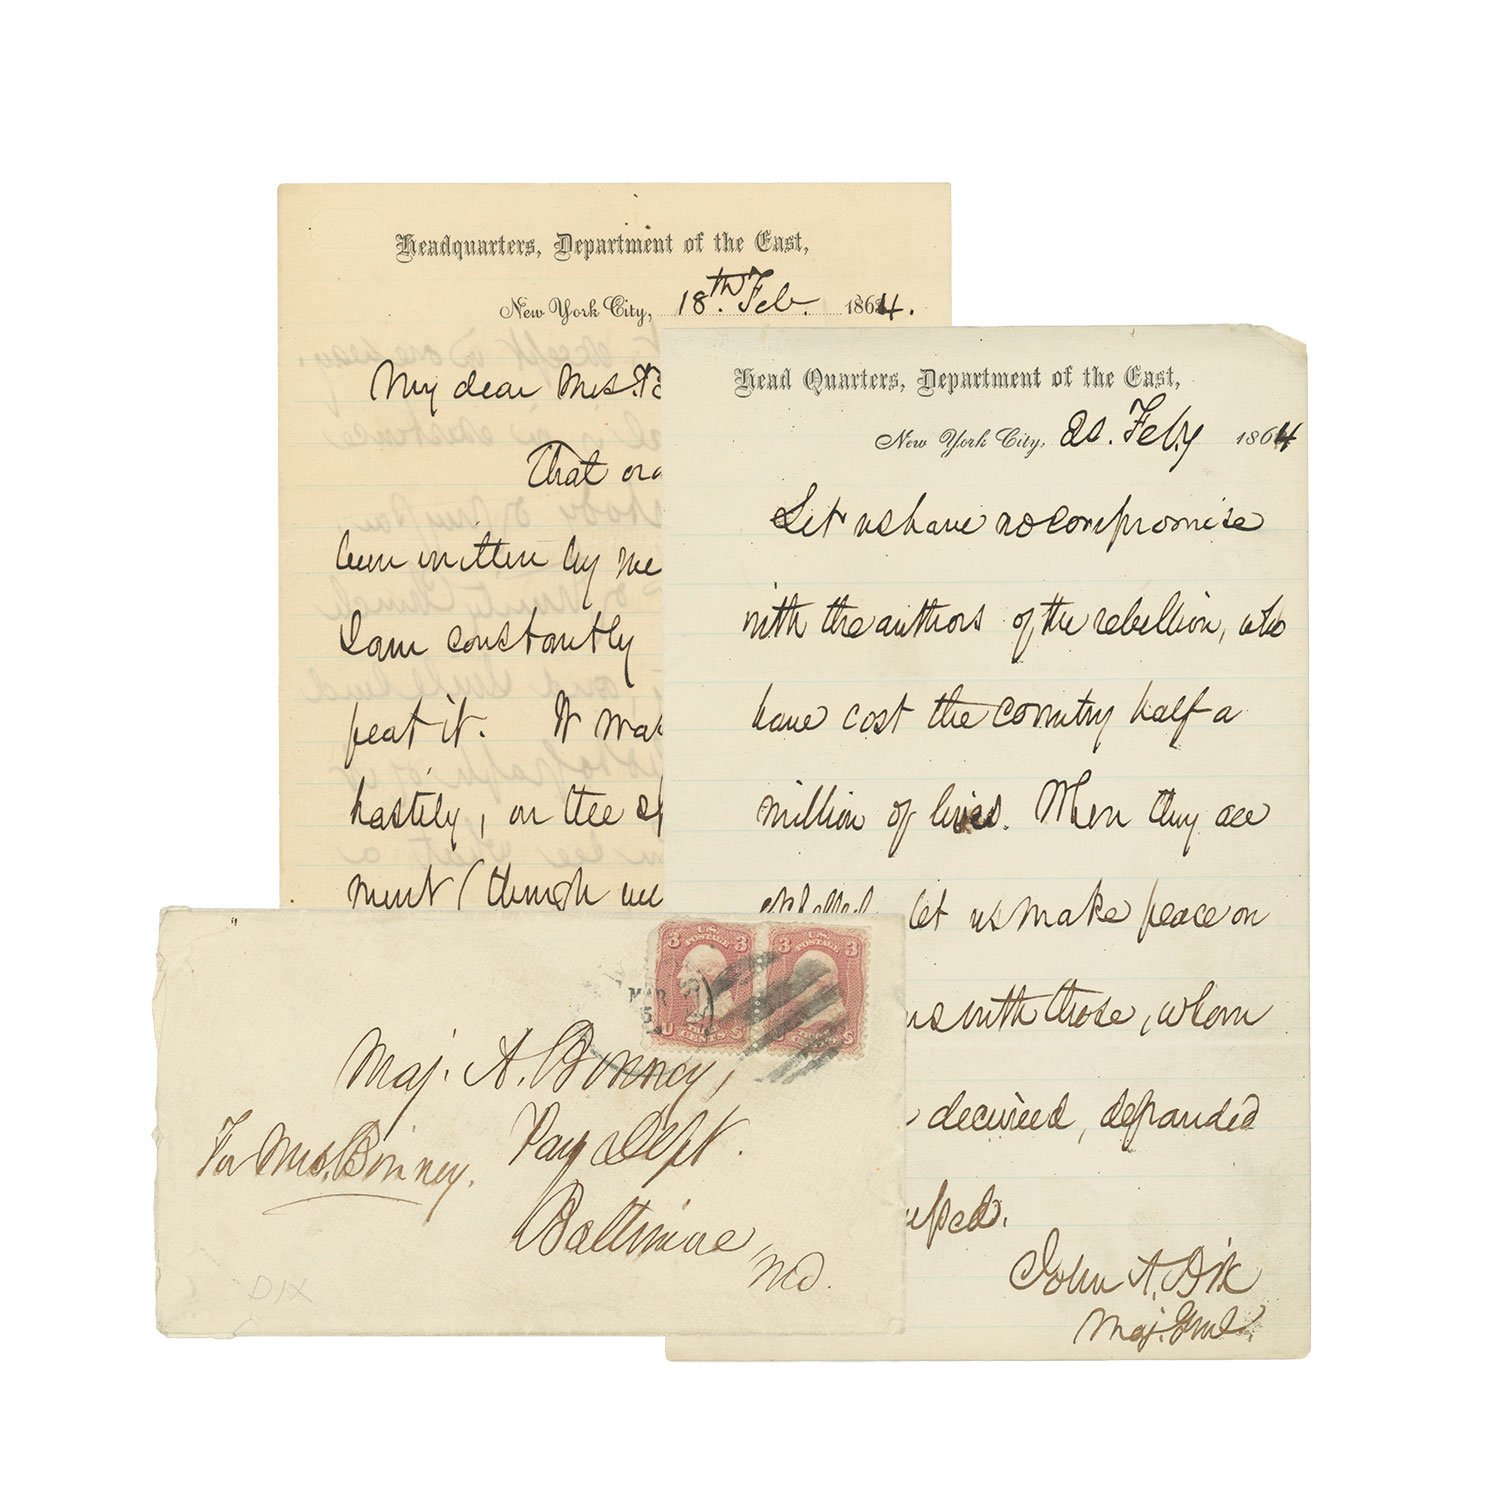 Headquarters, Department of the East,
New York City, 18th. Feb. 1864.
My dear Mrs.
That
been written by me
I am constantly
peat it. It was
hastily, on the
ment (though
Head Quarters, Department of the East,
New York City, 20. Feb.y 1864
Let us have no compromise
with the authors of the rebellion, who
have cost the country half a
million of lives. When they are
expelled, let us make peace on
with those, whom
deceived, depanded
John A. Dix
Maj. Genl.
U.S. POSTAGE
3 3
U S
THREE CENTS
U.S. POSTAGE
3 3
U S
THREE CENTS
MAR
5
Maj. A. Bonney,
Pay Dept.
For Mrs. Bonney.
Baltimore,
Md.
DIX